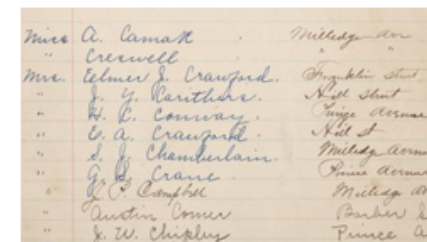 Miss A. Camak . Milledge Ave
" Creswell " "
Mrs. Eelmer J. Crawford. Franklin street
" J. Y. Carithers. Hill Street
" H. C. Conway. Prince Avenue
" E. A. Crawford. Hill St
" S. J. Chamberlain. Milledge Avenue
" G. Crane. Prince Avenue
" Campbell Milledge Av
" Austin Comer Barber S
" J. W. Chipley Prince A